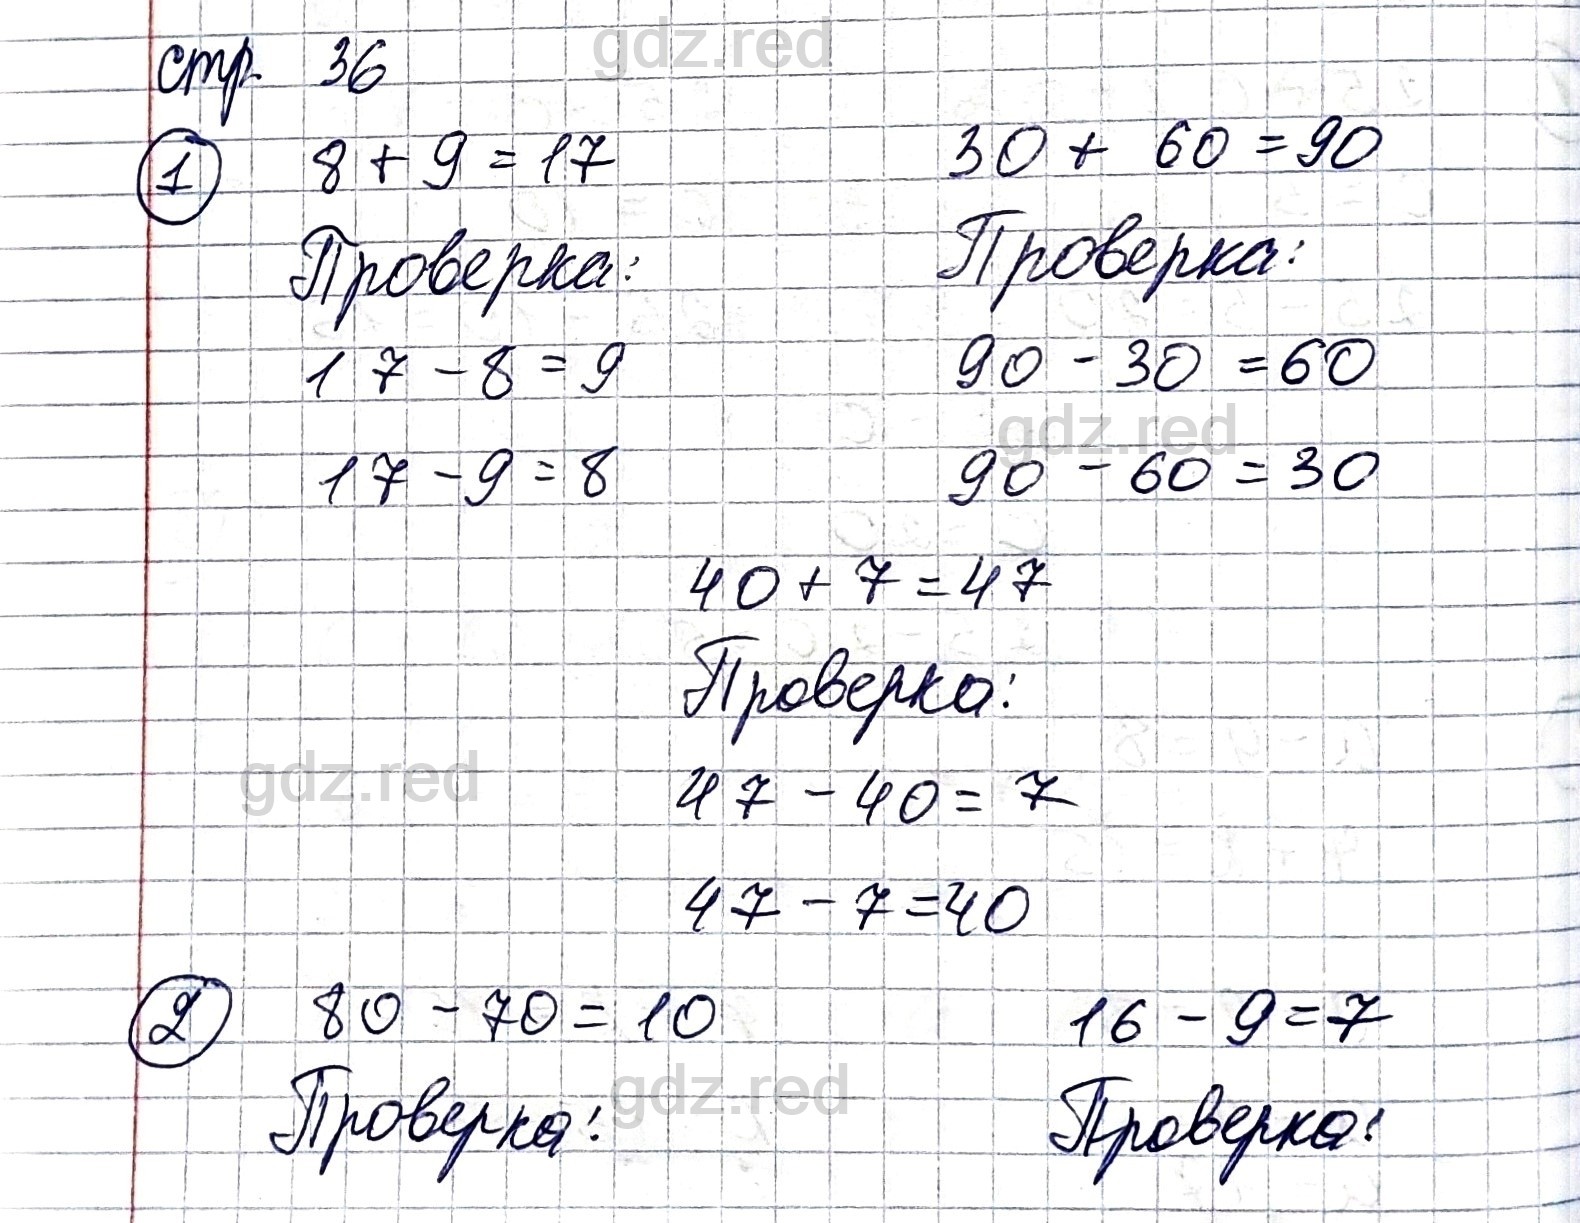 gdz.red
стр. 36
1 8 + 9 = 17 30 + 60 = 90
Проверка: Проверка:
17 - 8 = 9 90 - 30 = 60
gdz.red
17 - 9 = 8 90 - 60 = 30
40 + 7 = 47
Проверка:
gdz.red
47 - 40 = 7
47 - 7 = 40
2 80 - 70 = 10 16 - 9 = 7
gdz.red
Проверка: Проверка: